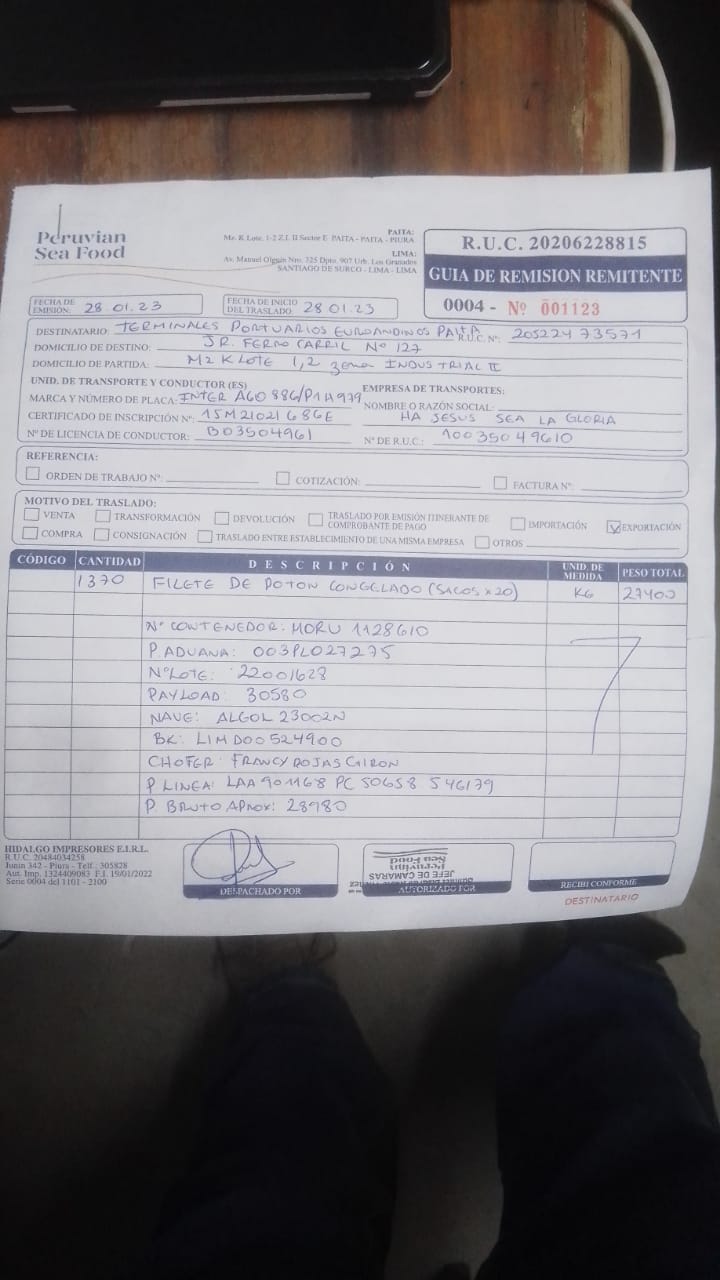 Peruvian
Sea Food
PAITA:
Mz. K Lote. 1-2 Z.I. II Sector E PAITA - PAITA - PIURA
LIMA:
Av. Manuel Olguin Nro. 325 Dpto. 907 Urb. Los Granados
SANTIAGO DE SURCO - LIMA - LIMA
R.U.C. 20206228815
GUIA DE REMISION REMITENTE
0004 - Nº 001123
FECHA DE EMISIÓN: 28.01.23 FECHA DE INICIO DEL TRASLADO: 28 01.23
DESTINATARIO: TERMINALES PORTUARIOS EUROANDINOS PAITA R.U.C. Nº: 20522473571
DOMICILIO DE DESTINO: JR. FERRO CARRIL Nº 127
DOMICILIO DE PARTIDA: MZ K LOTE 1,2 zona INDUSTRIAL II
UNID. DE TRANSPORTE Y CONDUCTOR (ES) EMPRESA DE TRANSPORTES:
MARCA Y NÚMERO DE PLACA: INTER AGO 886/P1H979 NOMBRE O RAZÓN SOCIAL:
CERTIFICADO DE INSCRIPCIÓN Nº: 15M21021686E HA JESUS SEA LA GLORIA
Nº DE LICENCIA DE CONDUCTOR: B03504961 Nº DE R.U.C.: 10035049610
REFERENCIA:
ORDEN DE TRABAJO Nº: COTIZACIÓN: FACTURA Nº:
MOTIVO DEL TRASLADO:
VENTA TRANSFORMACIÓN DEVOLUCIÓN TRASLADO POR EMISIÓN ITINERANTE DE COMPROBANTE DE PAGO IMPORTACIÓN EXPORTACIÓN
COMPRA CONSIGNACIÓN TRASLADO ENTRE ESTABLECIMIENTO DE UNA MISMA EMPRESA OTROS
CÓDIGO CANTIDAD DESCRIPCIÓN UNID. DE MEDIDA PESO TOTAL
1370 FILETE DE POTON CONGELADO (SACOS x 20) KG 27400
Nº CONTENEDOR: MORU 1128610
P. ADUANA: 003PL027275
Nº LOTE: 22001628
PAYLOAD: 30580
NAVE: ALGOL 23002N
BK: LIMD00524900
CHOFER: FRANCY ROJAS GIRON
P LINEA: LAA901168 PC 50658 546179
P. BRUTO APROX: 28980
HIDALGO IMPRESORES E.I.R.L.
R.U.C. 20484034258
Junin 342 - Piura - Telf.: 305828
Aut. Imp. 1324409083 F.I. 19/01/2022
Serie 0004 del 1101 - 2100
DESPACHADO POR
JEFE DE CAMARAS
Peruvian
Sea Food
AUTORIZADO POR
RECIBI CONFORME
DESTINATARIO